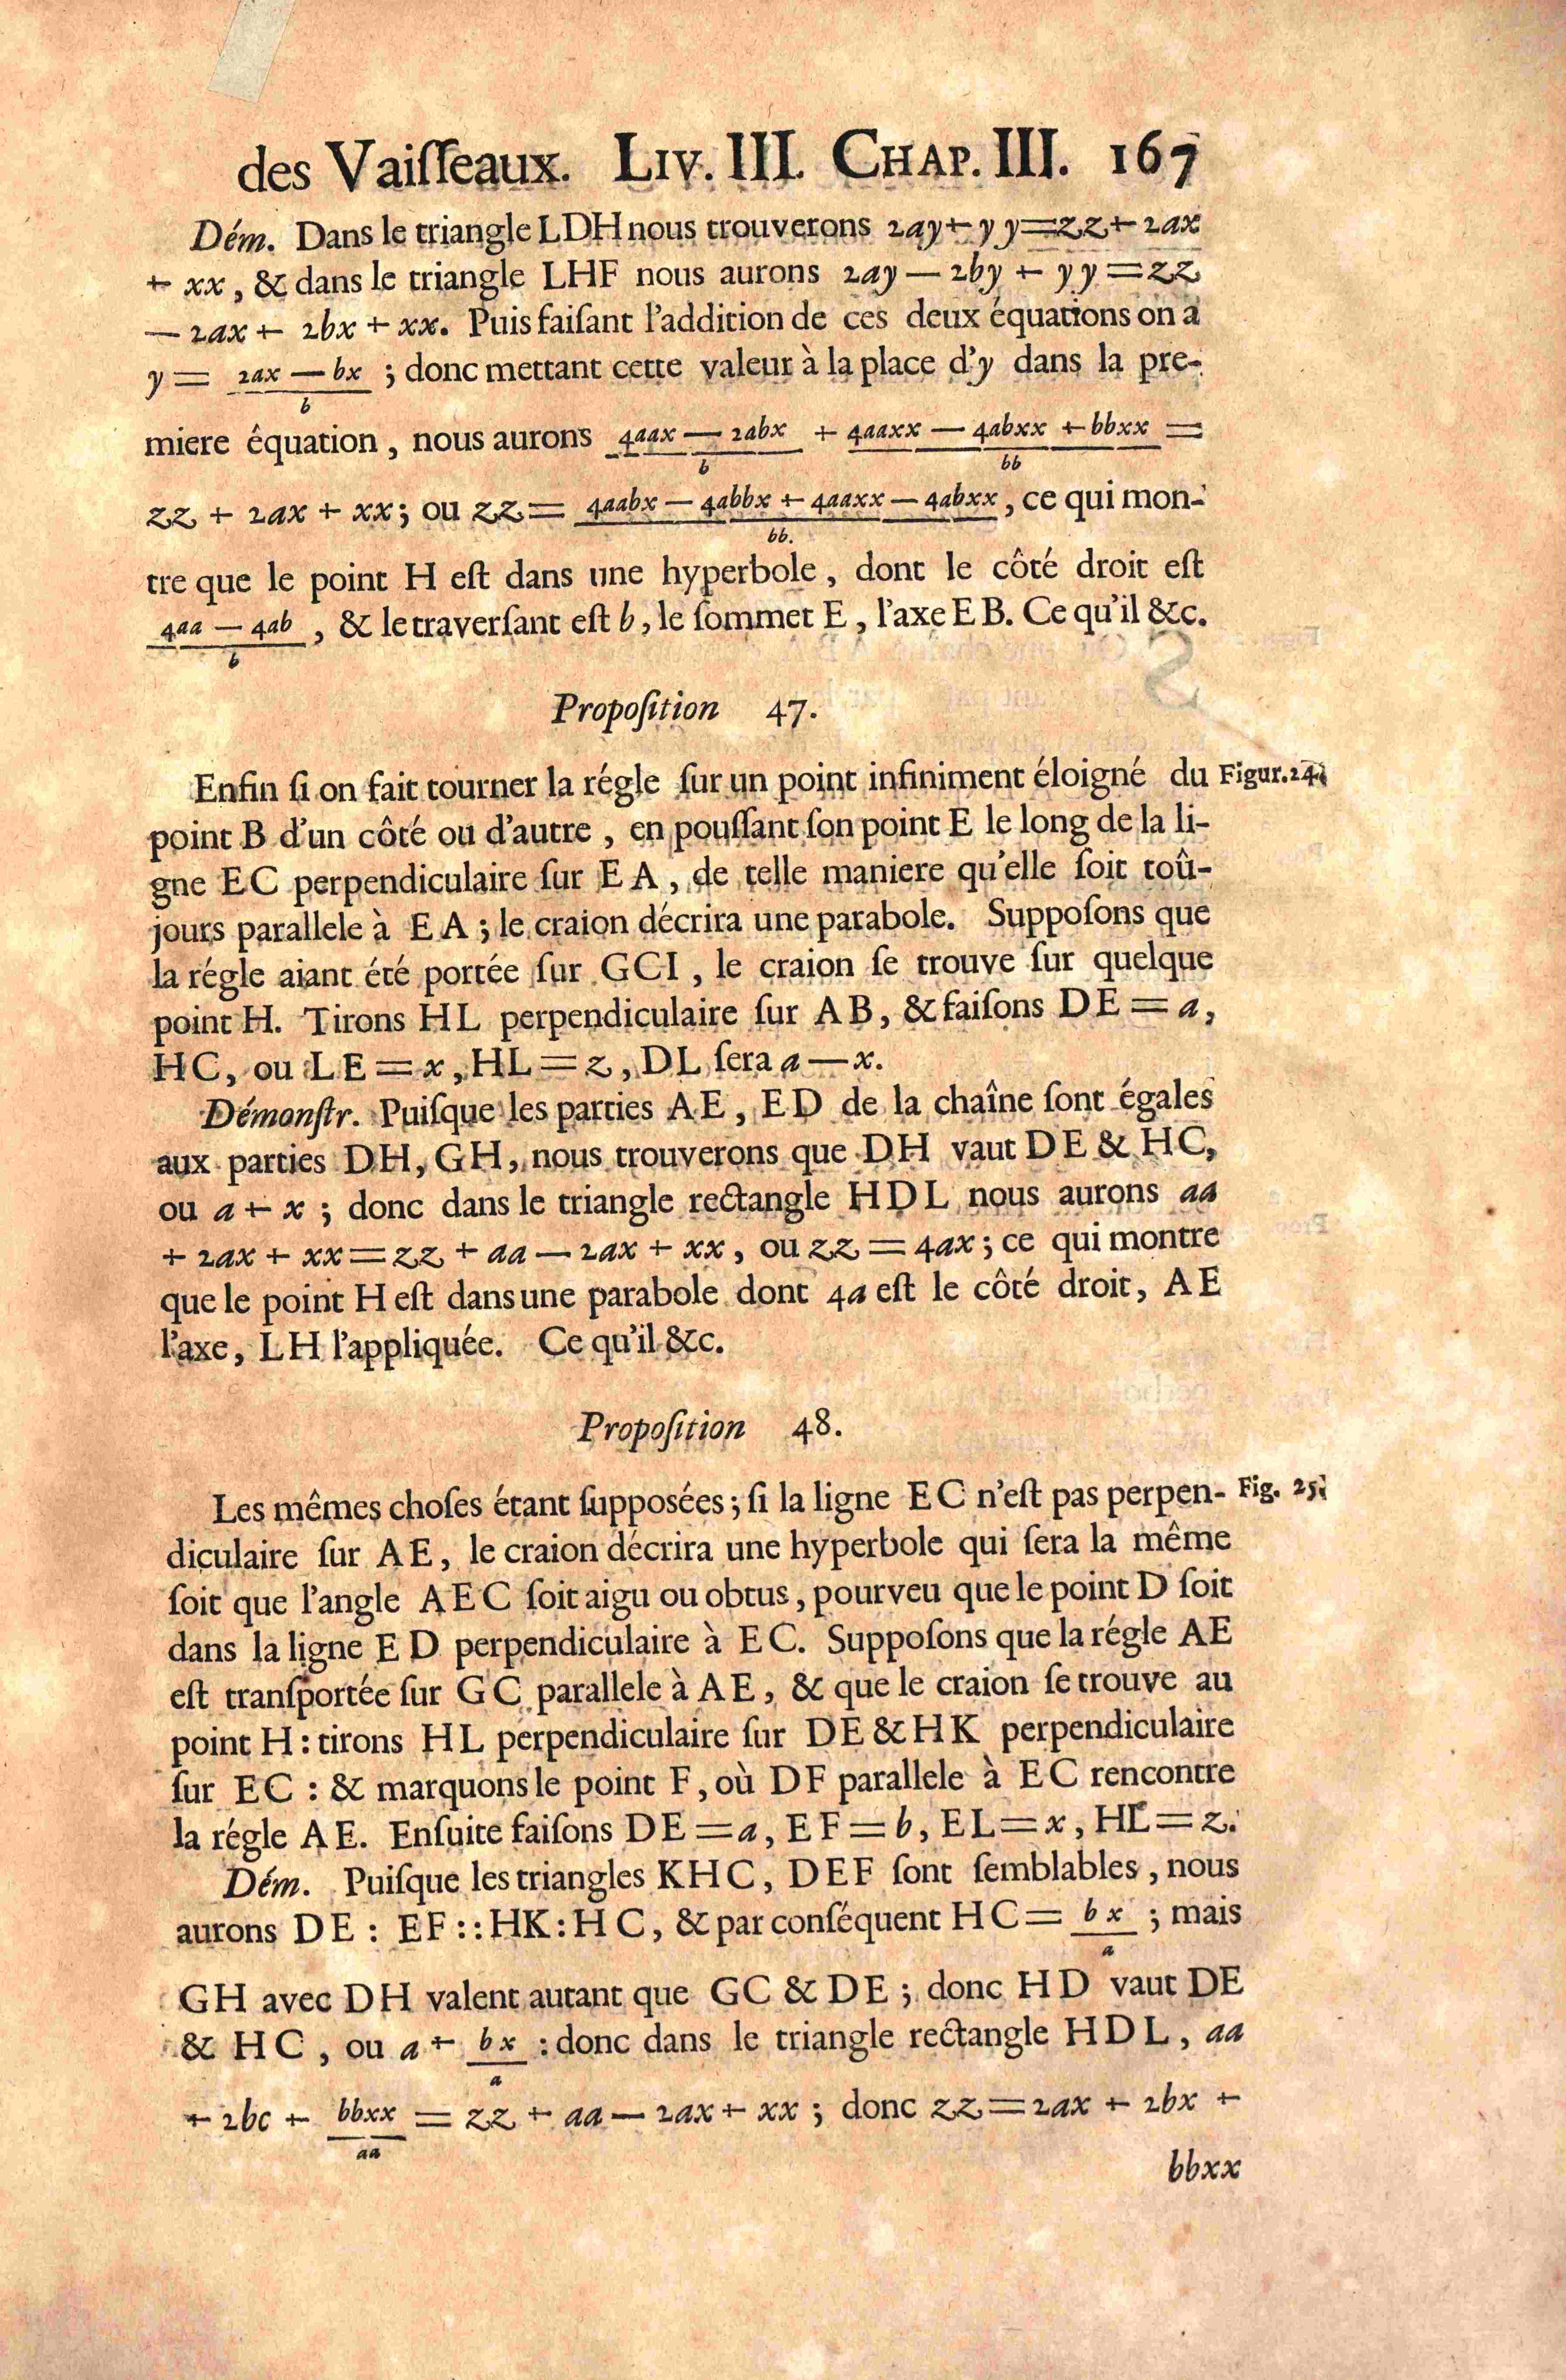 des Vaiſſeaux. LIV. III. CHAP. III. 167
Dém. Dans le triangle LDH nous trouverons 2ay + yy = zz + 2ax
+ xx, & dans le triangle LHF nous aurons 2ay — 2by + yy = zz
— 2ax + 2bx + xx. Puis faiſant l'addition de ces deux équations on a
y = 2ax — bx ; donc mettant cette valeur à la place d'y dans la pre-
b
miere équation, nous aurons 4aax — 2abx + 4aaxx — 4abxx + bbxx =
b bb
zz + 2ax + xx; ou zz = 4aabx — 4abbx + 4aaxx — 4abxx, ce qui mon-
bb.
tre que le point H eſt dans une hyperbole, dont le côté droit eſt
4aa — 4ab, & le traverſant eſt b, le ſommet E, l'axe EB. Ce qu'il &c.
b
Propoſition 47.
Enfin ſi on fait tourner la régle ſur un point infiniment éloigné du Figur. 24.
point B d'un côté ou d'autre, en pouſſant ſon point E le long de la li-
gne EC perpendiculaire ſur EA, de telle maniere qu'elle ſoit toû-
jours parallele à EA; le craion décrira une parabole. Suppoſons que
la régle aiant été portée ſur GCI, le craion ſe trouve ſur quelque
point H. Tirons HL perpendiculaire ſur AB, & faiſons DE = a,
HC, ou LE = x, HL = z, DL ſera a — x.
Démonſtr. Puiſque les parties AE, ED de la chaîne ſont égales
aux parties DH, GH, nous trouverons que DH vaut DE & HC,
ou a + x; donc dans le triangle rectangle HDL nous aurons aa
+ 2ax + xx = zz + aa — 2ax + xx, ou zz = 4ax; ce qui montre
que le point H eſt dans une parabole dont 4a eſt le côté droit, AE
l'axe, LH l'appliquée. Ce qu'il &c.
Propoſition 48.
Les mêmes choſes étant ſuppoſées; ſi la ligne EC n'eſt pas perpen- Fig. 25.
diculaire ſur AE, le craion décrira une hyperbole qui ſera la même
ſoit que l'angle AEC ſoit aigu ou obtus, pourveu que le point D ſoit
dans la ligne ED perpendiculaire à EC. Suppoſons que la régle AE
eſt tranſportée ſur GC parallele à AE, & que le craion ſe trouve au
point H: tirons HL perpendiculaire ſur DE & HK perpendiculaire
ſur EC: & marquons le point F, où DF parallele à EC rencontre
la régle AE. Enſuite faiſons DE = a, EF = b, EL = x, HL = z.
Dém. Puiſque les triangles KHC, DEF ſont ſemblables, nous
aurons DE : EF :: HK : HC, & par conſéquent HC = bx ; mais
a
GH avec DH valent autant que GC & DE; donc HD vaut DE
& HC, ou a + bx : donc dans le triangle rectangle HDL, aa
a
+ 2bc + bbxx = zz + aa — 2ax + xx; donc zz = 2ax + 2bx +
aa
bbxx